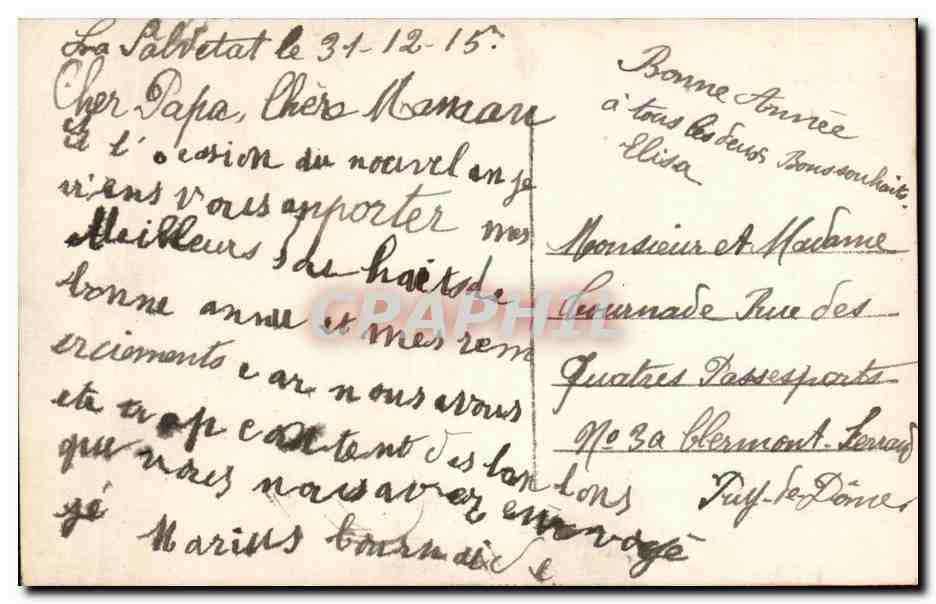 La Salvetat le 31-12-15.
Cher Papa, Chère Maman
à l'ocasion du nouvel an je
viens vous apporter mes
Meilleurs souhaits de
bonne année et mes rem
erciements car nous avons
ete trop contents des bonbons
que vous nous avez envoyé
gé Marius Cournade
Bonne Année
à tous les deux Bons souhaits.
Elisa
Monsieur et Madame
Cournade Rue des
Quatres Passesports
No 3a Clermont-Ferrand
Puy-de-Dôme
CPAPHIL